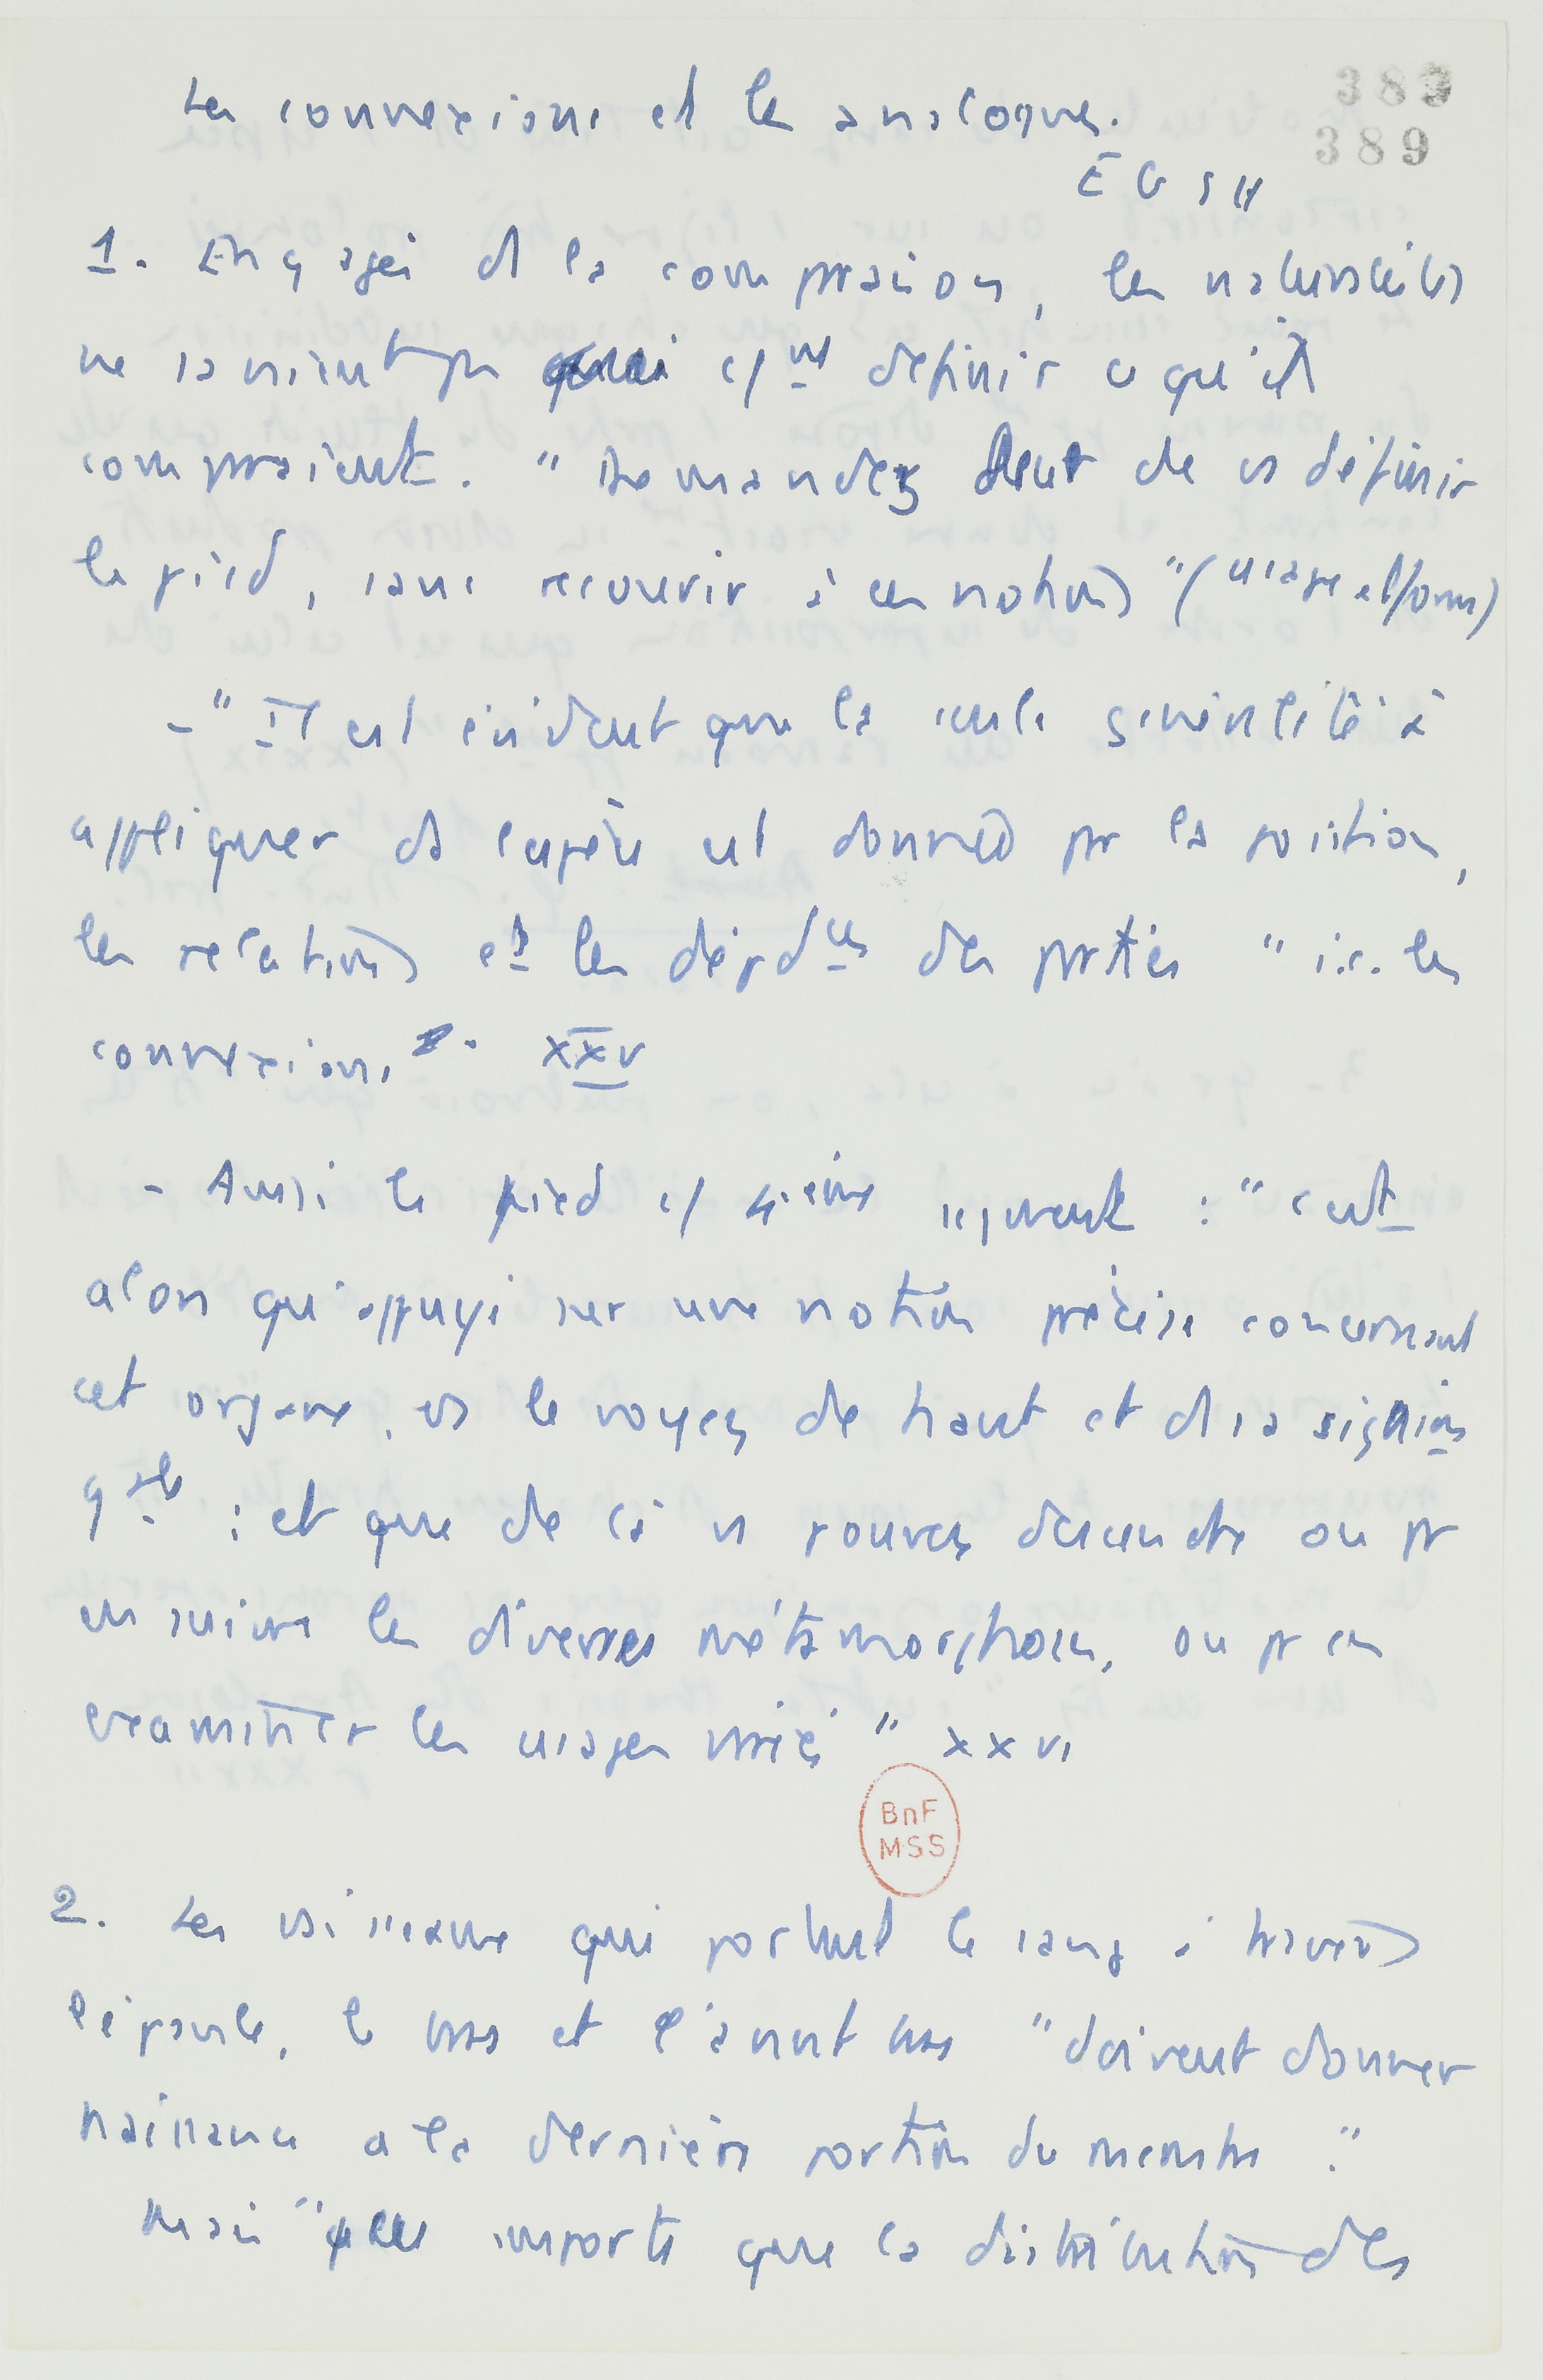 Les connexions et les analogues.
389
389
E G S H
1. Engagés ds la comparaison, les naturalistes
ne savaient pas c/ mt définir ce qu'ils
comparaient. "Demandez leur de vs définir
le pied, sans recourir à ces notions" (usage et forme)
- "Il est évident que la seule généralité à
appliquer ds l'espèce est donnée par la position,
les relations et les dépdces des parties" i.e. les
connexions. XXV
- Aussi le pied c/ 4ième segment : "c'est
alors qu'appuyé sur une notion précise concernant
cet organe, vs le voyez de haut et ds sa signion
gale : et que de là vs pouvez descendre ou pr
en suivre les diverses métamorphoses, ou pr en
examiner les usages variés" XXVI
BnF
MSS
2. Les vaisseaux qui portent le sang à travers
l'épaule, le bras et l'avant bras "doivent donner
naissance a la dernière portion du membre."
Mais "peu importe que la distribution des